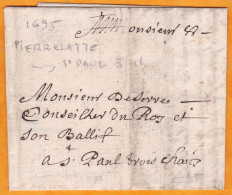 1695
Monsieur
PIERRELATTE
St PAUL 3 ch
Monsieur De Serre
Conseiller du Roy et
son Ballif
a St Paul trois chaux